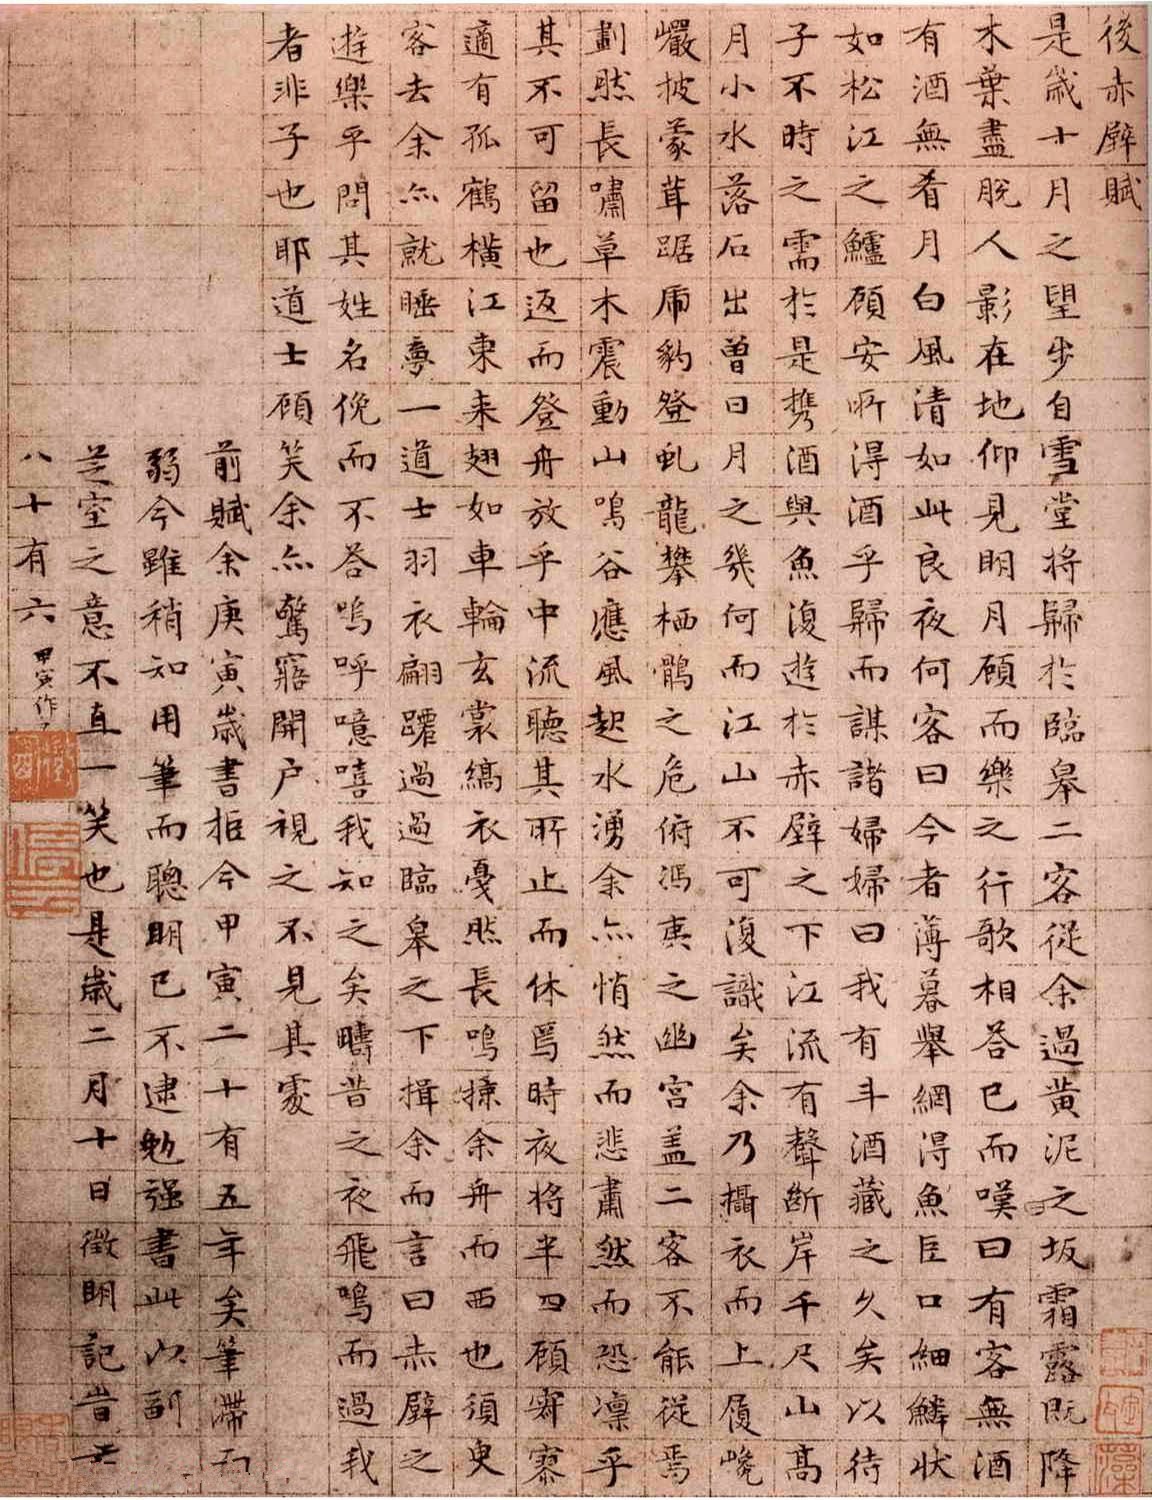 後赤壁賦
是歲十月之望步自雪堂將歸於臨皋二客從余過黃泥之坂霜露既降
木葉盡脫人影在地仰見明月顧而樂之行歌相荅已而嘆曰有客無酒
有酒無肴月白風清如此良夜何客曰今者薄暮舉網得魚巨口細鱗狀
如松江之鱸顧安所得酒乎歸而謀諸婦婦曰我有斗酒藏之久矣以待
子不時之需於是携酒與魚復遊於赤壁之下江流有聲斷岸千尺山高
月小水落石出曾日月之幾何而江山不可復識矣余乃攝衣而上履巉
巖披蒙茸踞虎豹登虬龍攀栖鶻之危俯馮夷之幽宮蓋二客不能從焉
劃然長嘯草木震動山鳴谷應風起水湧余亦悄然而悲肅然而恐凜乎
其不可留也返而登舟放乎中流聽其所止而休焉時夜將半四顧寂寥
適有孤鶴橫江東来翅如車輪玄裳縞衣戛然長鳴掠余舟而西也須臾
客去余亦就睡夢一道士羽衣翩躚過過臨皋之下揖余而言曰赤壁之
遊樂乎問其姓名俛而不荅嗚呼噫嘻我知之矣疇昔之夜飛鳴而過我
者非子也耶道士顧笑余亦驚寤開户視之不見其處
前賦余庚寅歲書拒今甲寅二十有五年矣筆滯而
弱今雖稍知用筆而聰明已不逮勉強書此以副
芝室之意不直一笑也是歲二月十日徵明記旹
八十有六 甲寅作